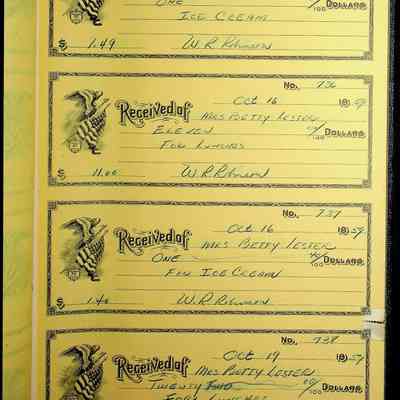 ONE /100 DOLLARS
ICE CREAM
$ 1.49 W R Robinson
No. 736
Oct 16 1859
Received of MRS BETTY LESTER
ELEVEN /100 DOLLARS
FOR LUNCHES
$ 11.00 W.R. Robinson
No. 737
Oct 16 1859
Received of MRS BETTY LESTER
ONE 40/100 DOLLARS
FOR ICE CREAM
$ 1.40 W.R. Robinson
No. 738
Oct 19 1859
Received of MRS BETTY LESTER
TWENTY TWO 00/100 DOLLARS
FOR LUNCHES